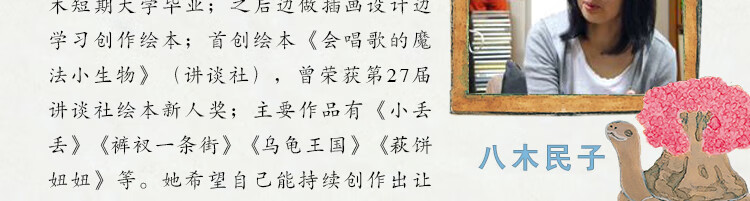 术短期大学毕业；之后边做插画设计边
学习创作绘本；首创绘本《会唱歌的魔
法小生物》（讲谈社），曾荣获第27届
讲谈社绘本新人奖；主要作品有《小丢
丢》《裤衩一条街》《乌龟王国》《萩饼
妞妞》等。她希望自己能持续创作出让
八木民子